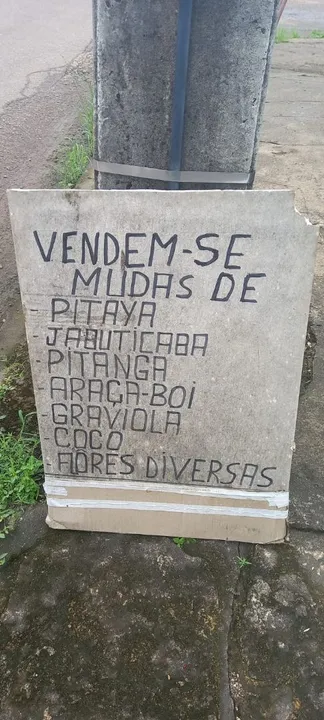 VENDEM-SE
MUDAS DE
PITAYA
- JABUTICABA
- PITANGA
- ARAÇA-BOI
- GRAVIOLA
- COCO
- FLORES DIVERSAS